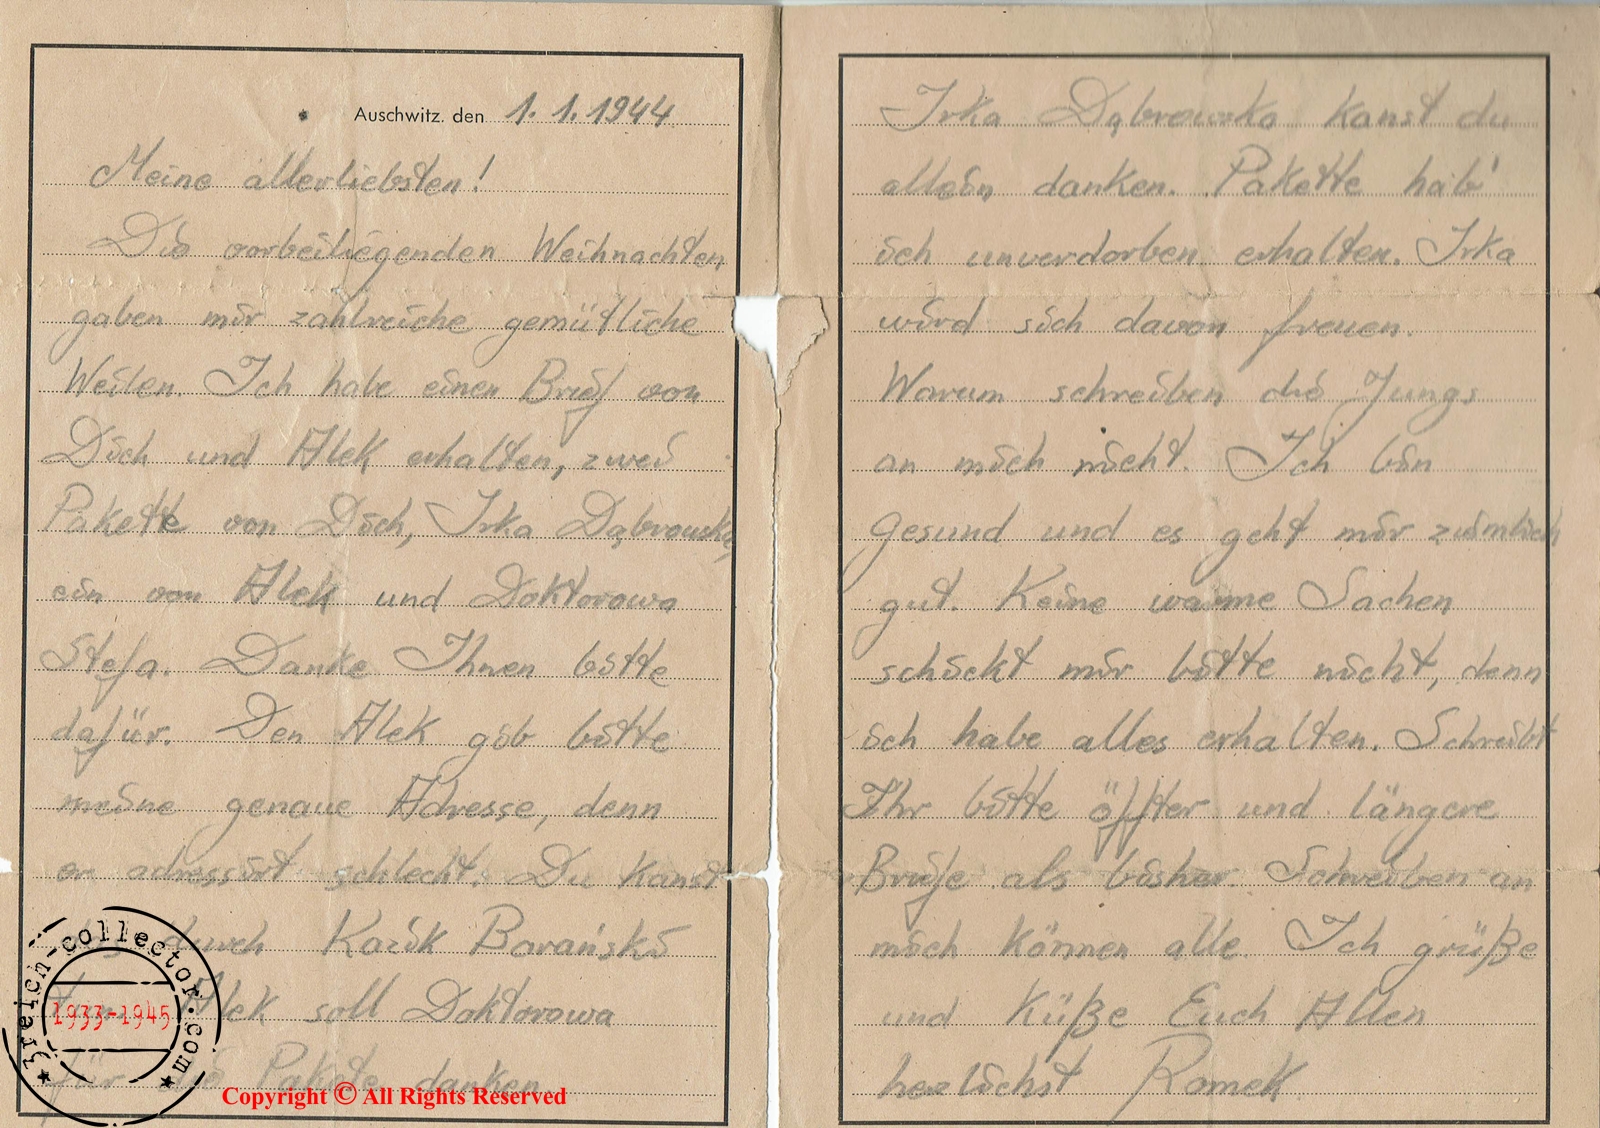 Auschwitz, den 1.1.1944
Meine allerliebsten!
Die vorbeiliegenden Weihnachten
gaben mir zahlreiche gemütliche
Weilen. Ich habe einen Brief von
Dich und Alek erhalten, zwei
Pakette von Dich, Irka Dąbrowska,
ein von Alek und Doktorowa
Stefa. Danke Ihnen bitte
dafür. Den Alek gib bitte
meine genaue Adresse, denn
er adressirt schlecht. Du kanst
durch Kazik Barański
Alek soll Doktorowa
für die Pakete danken.
Irka Dąbrowska kanst du
allein danken. Pakette hab'
ich unverdorben erhalten. Irka
wird sich davon freuen.
Warum schreiben die Jungs
an mich nicht. Ich bin
gesund und es geht mir ziemlich
gut. Keine warme Sachen
schickt mir bitte nicht, denn
ich habe alles erhalten. Schreibt
Ihr bitte öffter und längere
Briefe als bisher. Schreiben an
mich können alle. Ich grüße
und Küße Euch Allen
herzlichst Romek
3reich-collector.com
1933-1945
Copyright © All Rights Reserved